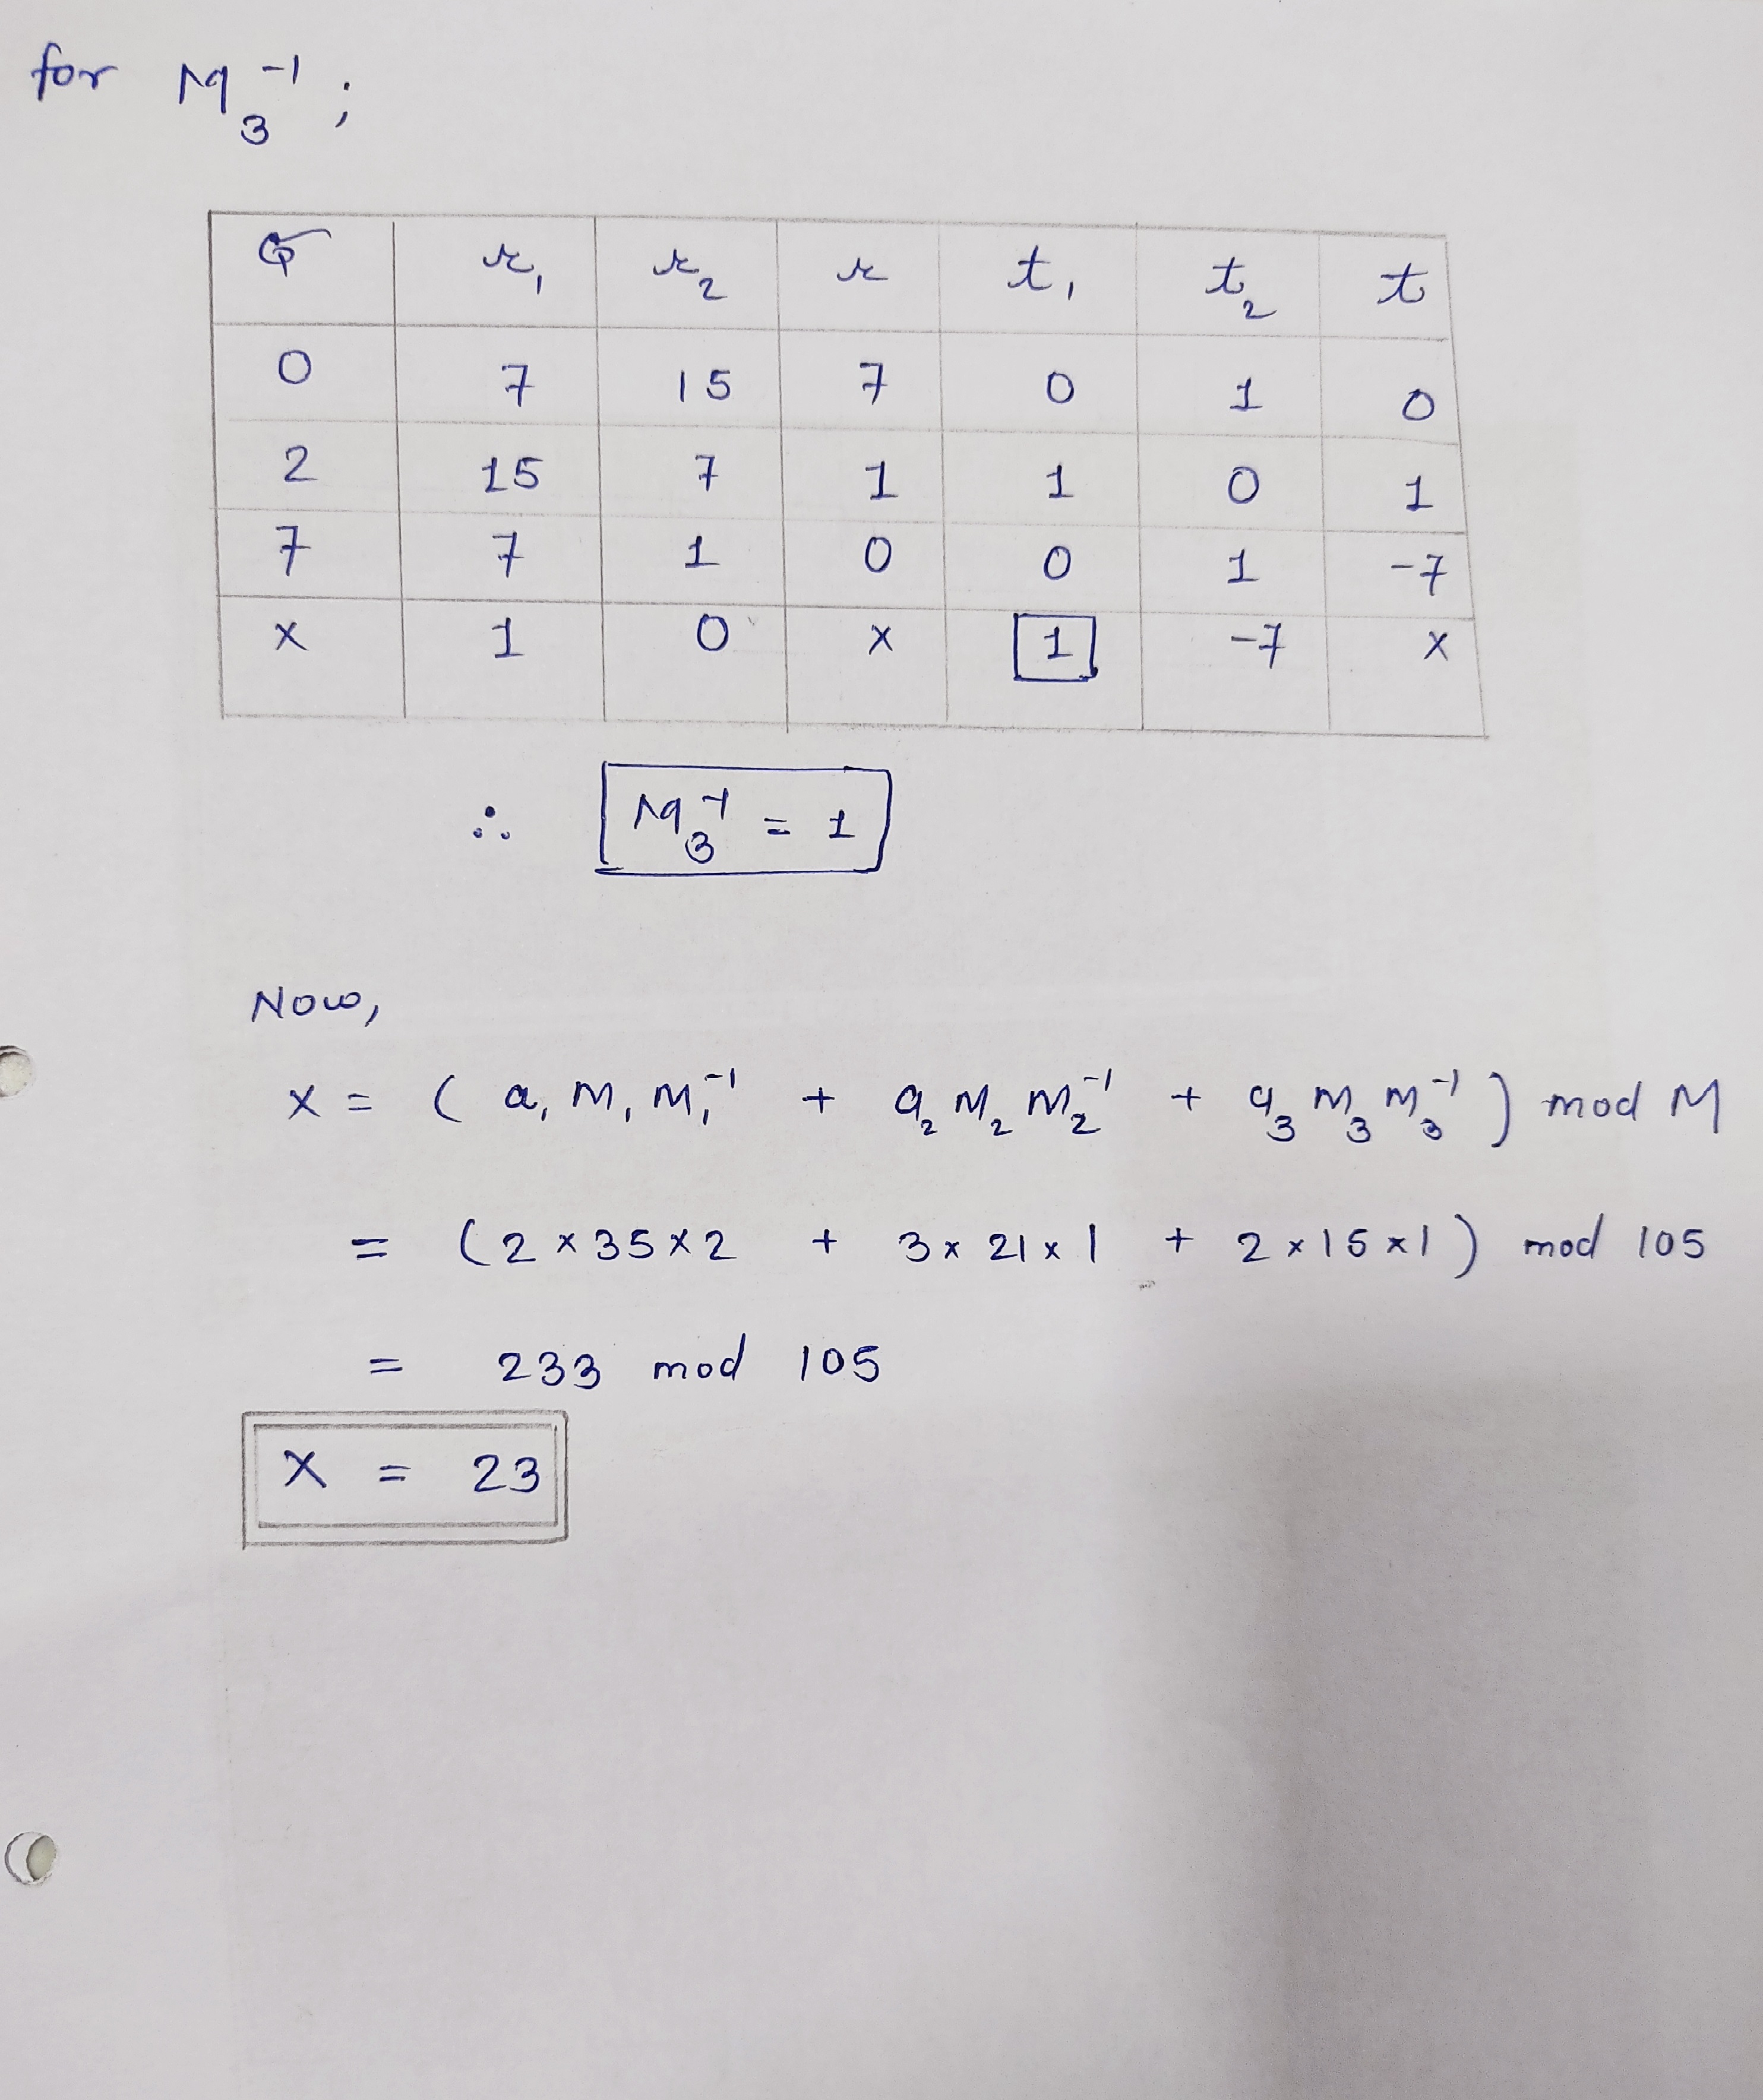 for M₃⁻¹ ;
Q r₁ r₂ r t₁ t₂ t
0 7 15 7 0 1 0
2 15 7 1 1 0 1
7 7 1 0 0 1 -7
x 1 0 x 1 -7 x
∴ M₃⁻¹ = 1
Now,
x = ( a₁ M₁ M₁⁻¹ + a₂ M₂ M₂⁻¹ + a₃ M₃ M₃⁻¹ ) mod M
= ( 2 × 35 × 2 + 3 × 21 × 1 + 2 × 15 × 1 ) mod 105
= 233 mod 105
X = 23